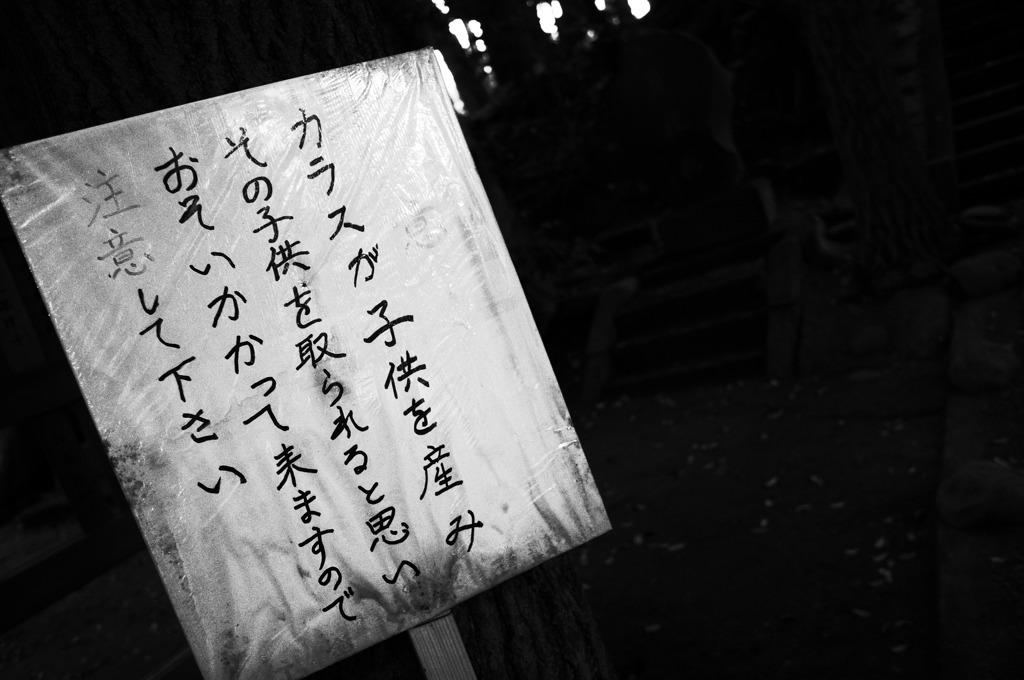 カラスが子供を産み
その子供を取られると思い
おそいかかって来ますので
注意して下さい